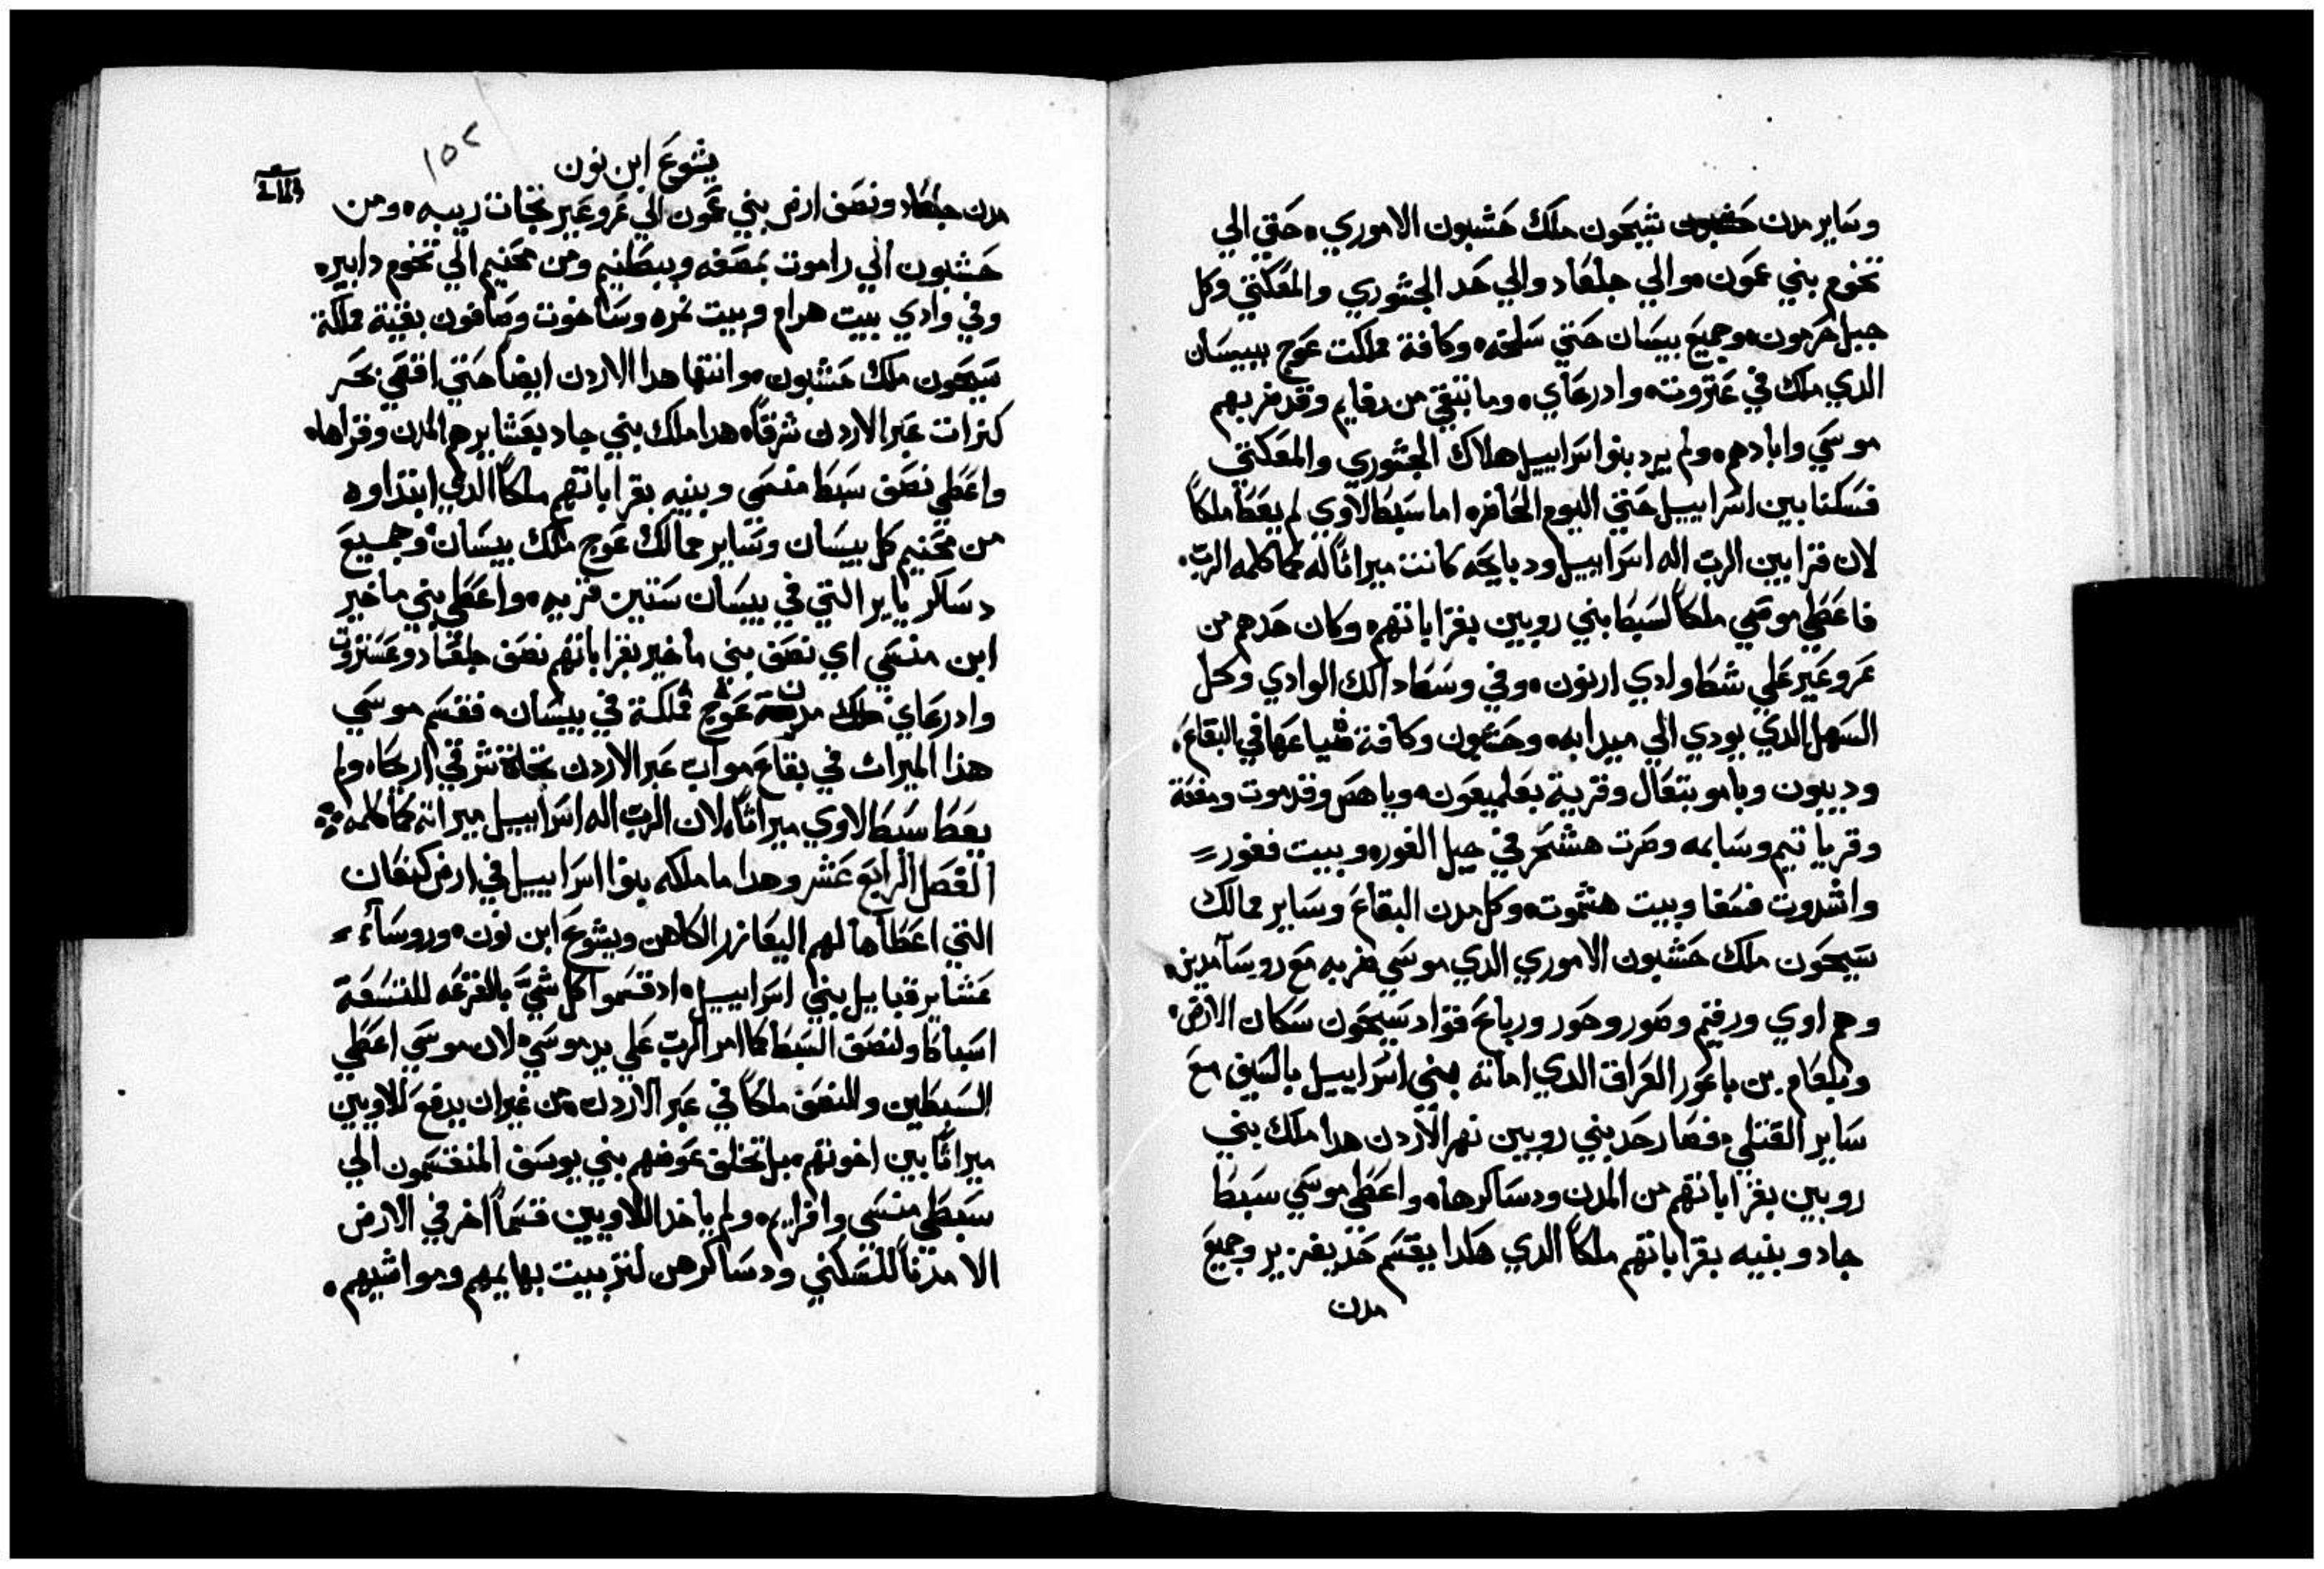 وساير مدن حشبون شيحون ملك حشبون الاموري. حتي الي
تخوم بني عمون. والي جلعاد والي حد الجشوري والمعكتي وكل
جبل حرمون. وجميع بيسان حتي سلخه. وكافة مملكت عوج ببيسان
الدي ملك في عتروته وادرعاي. وما تبقي من رفايم وقد ضربهم
موسي وابادهم. ولم يرد بنو اسراييل هلاك الجشوري والمعكتي
فسكنا بين اسراييل حتي اليوم الحاضره اما سبط لاوي لم يعط ملكاً
لان قرابين الرب اله اسراييل ودبايحه كانت ميراثاً له كما كلمه الرب.
فاعطي موسي ملكاً لسبط بني روبين بقراباتهم. وكان حدهم من
عروعير علي شط وادي ارنون. وفي وسط دالك الوادي وكل
السهل الدي يودي الي ميدابه. وحشبون وكافة ضياعها في البقاع.
وديبون وباموتبعال وقرية بعلميعون. وياهص وقدموت ومفعة
وقرياتيم وسابمه وصرت هشحر في جبل الغوره وبيت فغور
واشدوت فسفا وبيت هشموت. وكل مدن البقاع وساير ممالك
سيحون ملك حشبون الاموري الدي موسي ضربه مع روسآ مدين.
وهم اوي ورقيم وصور وحور ورباع قواد سيحون سكان الارض.
وبلعام بن باعور العراف الدي اماته بني اسراييل بالسيف مع
ساير القتلي. فصار حد بني روبين نهر الأردن هدا ملك بني
روبين بقراباتهم من المدن ودساكرها. واعطي موسي سبط
جاد وبنيه بقراباتهم ملكاً الدي هكدا يقسم حد يعزير وجميع
مدن
يشوع ابن نون
١٥٢
مدن جلعاد ونصف ارض بني عمون الي عروعير تجات ريبه. ومن
حشبون الي راموت مصفه وبيطنيم ومن محنيم الي تخوم دابيره
وفي وادي بيت هرام وبيت نمره وساخوت وصافون بقية مملكة
سيحون ملك حشبون. وانتها هدا الاردن ايضاً حتي اقصي بحر
كنرات عبر الاردن شرقاً. هدا ملك بني جاد بعشايرهم المدن وقراها.
واعطي نصف سبط منسي وبنيه بقراباتهم ملكاً الدي ابتداوه
من محنيم كل بيسان وساير ممالك عوج ملك بيسان وجميع
دساكر ياير التي في بيسان ستين قريه. واعطي بني ماخير
ابن منسي اي نصف بني ماخير بقراباتهم نصف جلعاد وعستروت
وادرعاي مدن عوج مملكة في بيسان. فقسم موسي
هذا الميراث في بقاع مواب عبر الاردن تجاة شرقي اريحا. ولم
يعط سبط لاوي ميراثاً. لان الرب اله اسراييل ميراثه كما كلمه
الفصل الرابع عشر وهدا ما ملكه بنوا اسراييل في ارض كنعان
التي اعطاها لهم اليعازر الكاهن ويشوع ابن نون. وروساء
عشاير قبايل بني اسراييل. اد قسموا كل شيّ بالقرعه للتسعة
اسباط ولنصف السبط كما امر الرب علي يد موسي. لان موسي اعطي
السبطين وللنصف ملكاً في عبر الاردن. من غير ان يدفع للاويين
ميراثاً بين اخوتهم. بل تخلف عوضهم بني يوسف المنقسمون الي
سبطي منسي وافرايم. ولم ياخد اللاويين قسماً اخر في الارض
الا مدناً للسكني ودساكرهن لتربيت بهايمهم ومواشيهم.